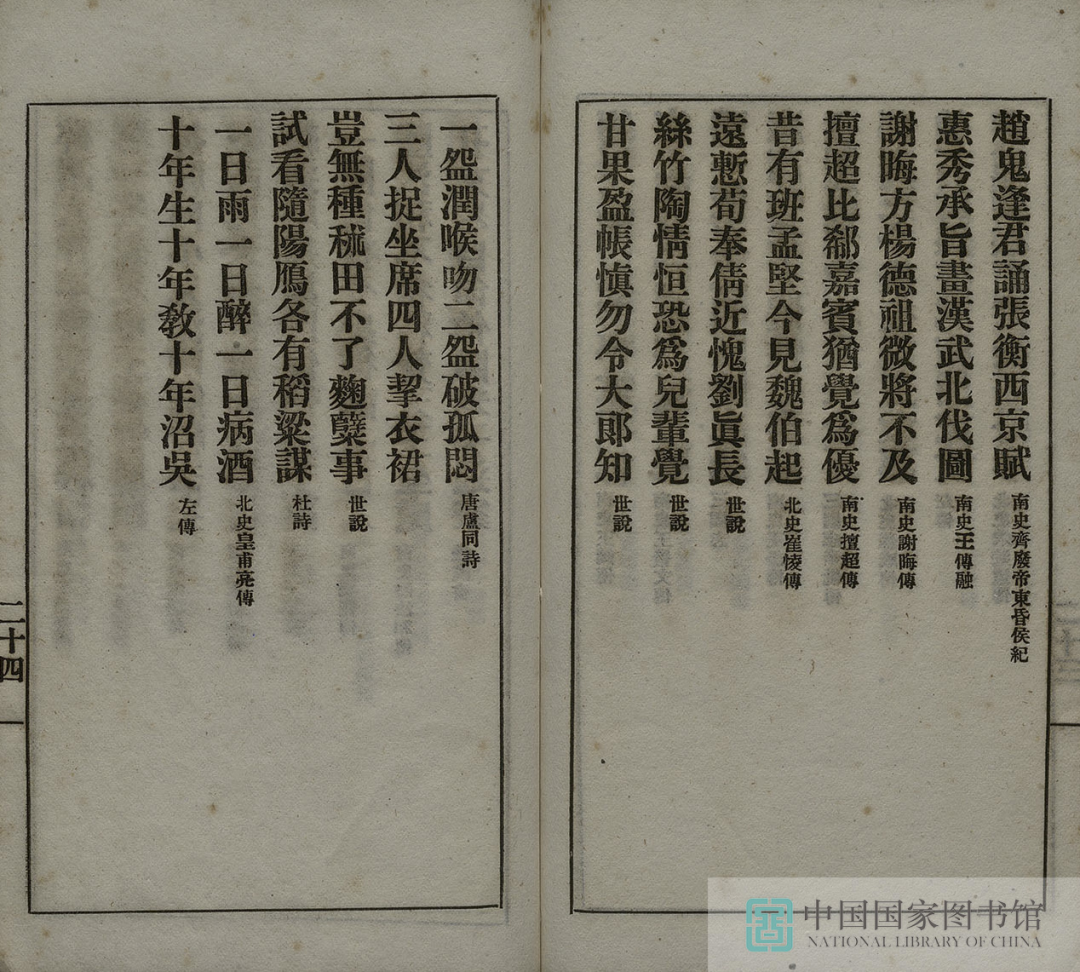 趙鬼逢君誦張衡西京賦 南史齊廢帝東昏侯紀
惠秀承旨畫漢武北伐圖 南史王傳融
謝晦方楊德祖微將不及 南史謝晦傳
擅超比郗嘉賓猶覺爲優 南史擅超傳
昔有班孟堅今見魏伯起 北史崔㥄傳
遠慙荀奉倩近愧劉眞長 世說
絲竹陶情恒恐爲兒輩覺 世說
甘果盈帳愼勿令大郎知 世說
一盌潤喉吻二盌破孤悶 唐盧同詩
三人捉坐席四人挈衣裙
豈無種秫田不了麴糱事 世說
試看隨陽鴈各有稻粱謀 杜詩
一日雨一日醉一日病酒 北史皇甫亮傳
十年生十年敎十年沼吳 左傳
二十四
中国国家图书馆
NATIONAL LIBRARY OF CHINA